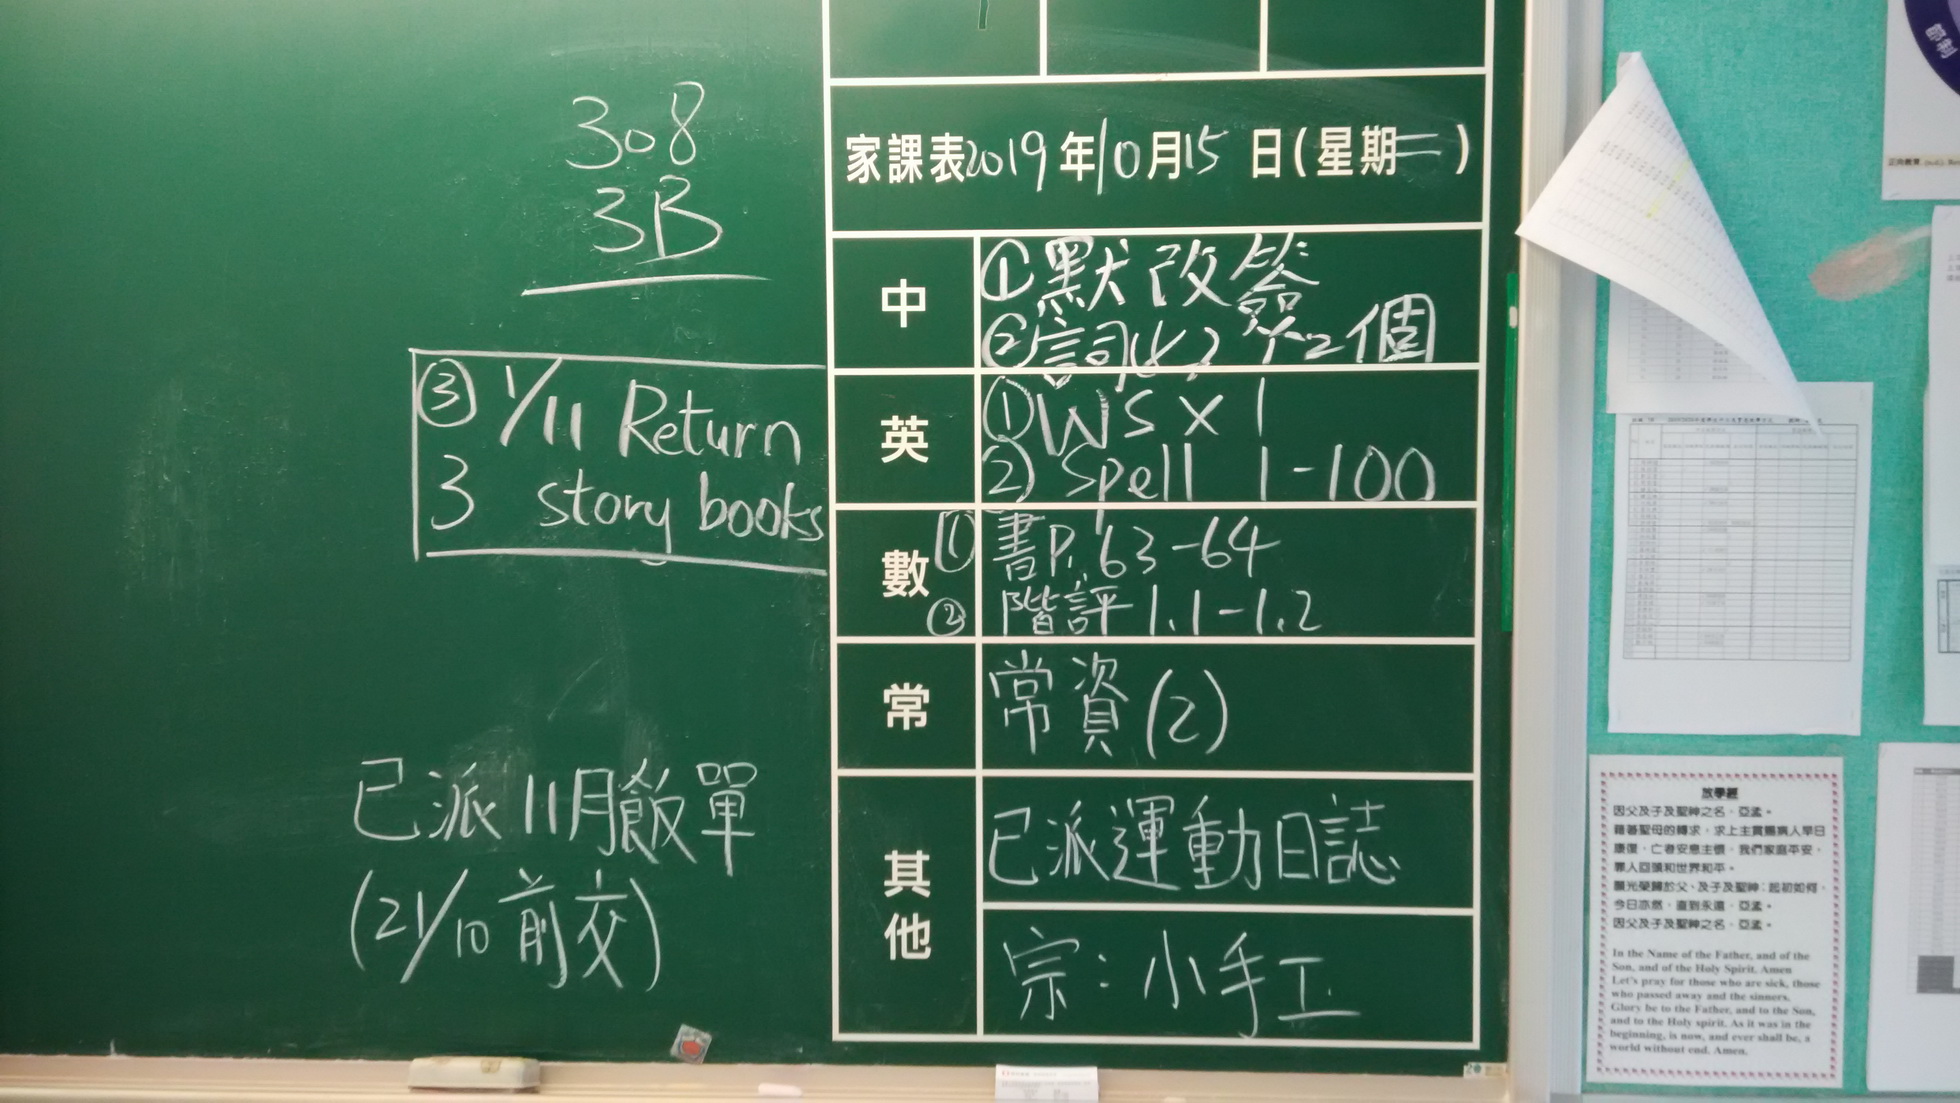 308
3B
③ 1/11 Return
3 story books
已派11月飯單
(21/10前交)
家課表2019年10月15日(星期二)
中
①默改簽
②
2個
英
①WS x 1
2) Spell 1-100
數
① 書P.63-64
② 階評1.1-1.2
常
常資(2)
其他
已派運動日誌
宗：小手工
放學經
因父及子及聖神之名，亞孟。
藉著聖母的轉求，求上主賞賜病人早日
康復，亡者安息主懷，我們家庭平安，
罪人回頭和世界和平。
願光榮歸於父、及子及聖神；起初如何，
今日亦然，直到永遠，亞孟。
因父及子及聖神之名，亞孟。
In the Name of the Father, and of the
Son, and of the Holy Spirit. Amen
Let's pray for those who are sick, those
who passed away and the sinners.
Glory be to the Father, and to the Son,
and to the Holy spirit. As it was in the
beginning, is now, and ever shall be, a
world without end. Amen.